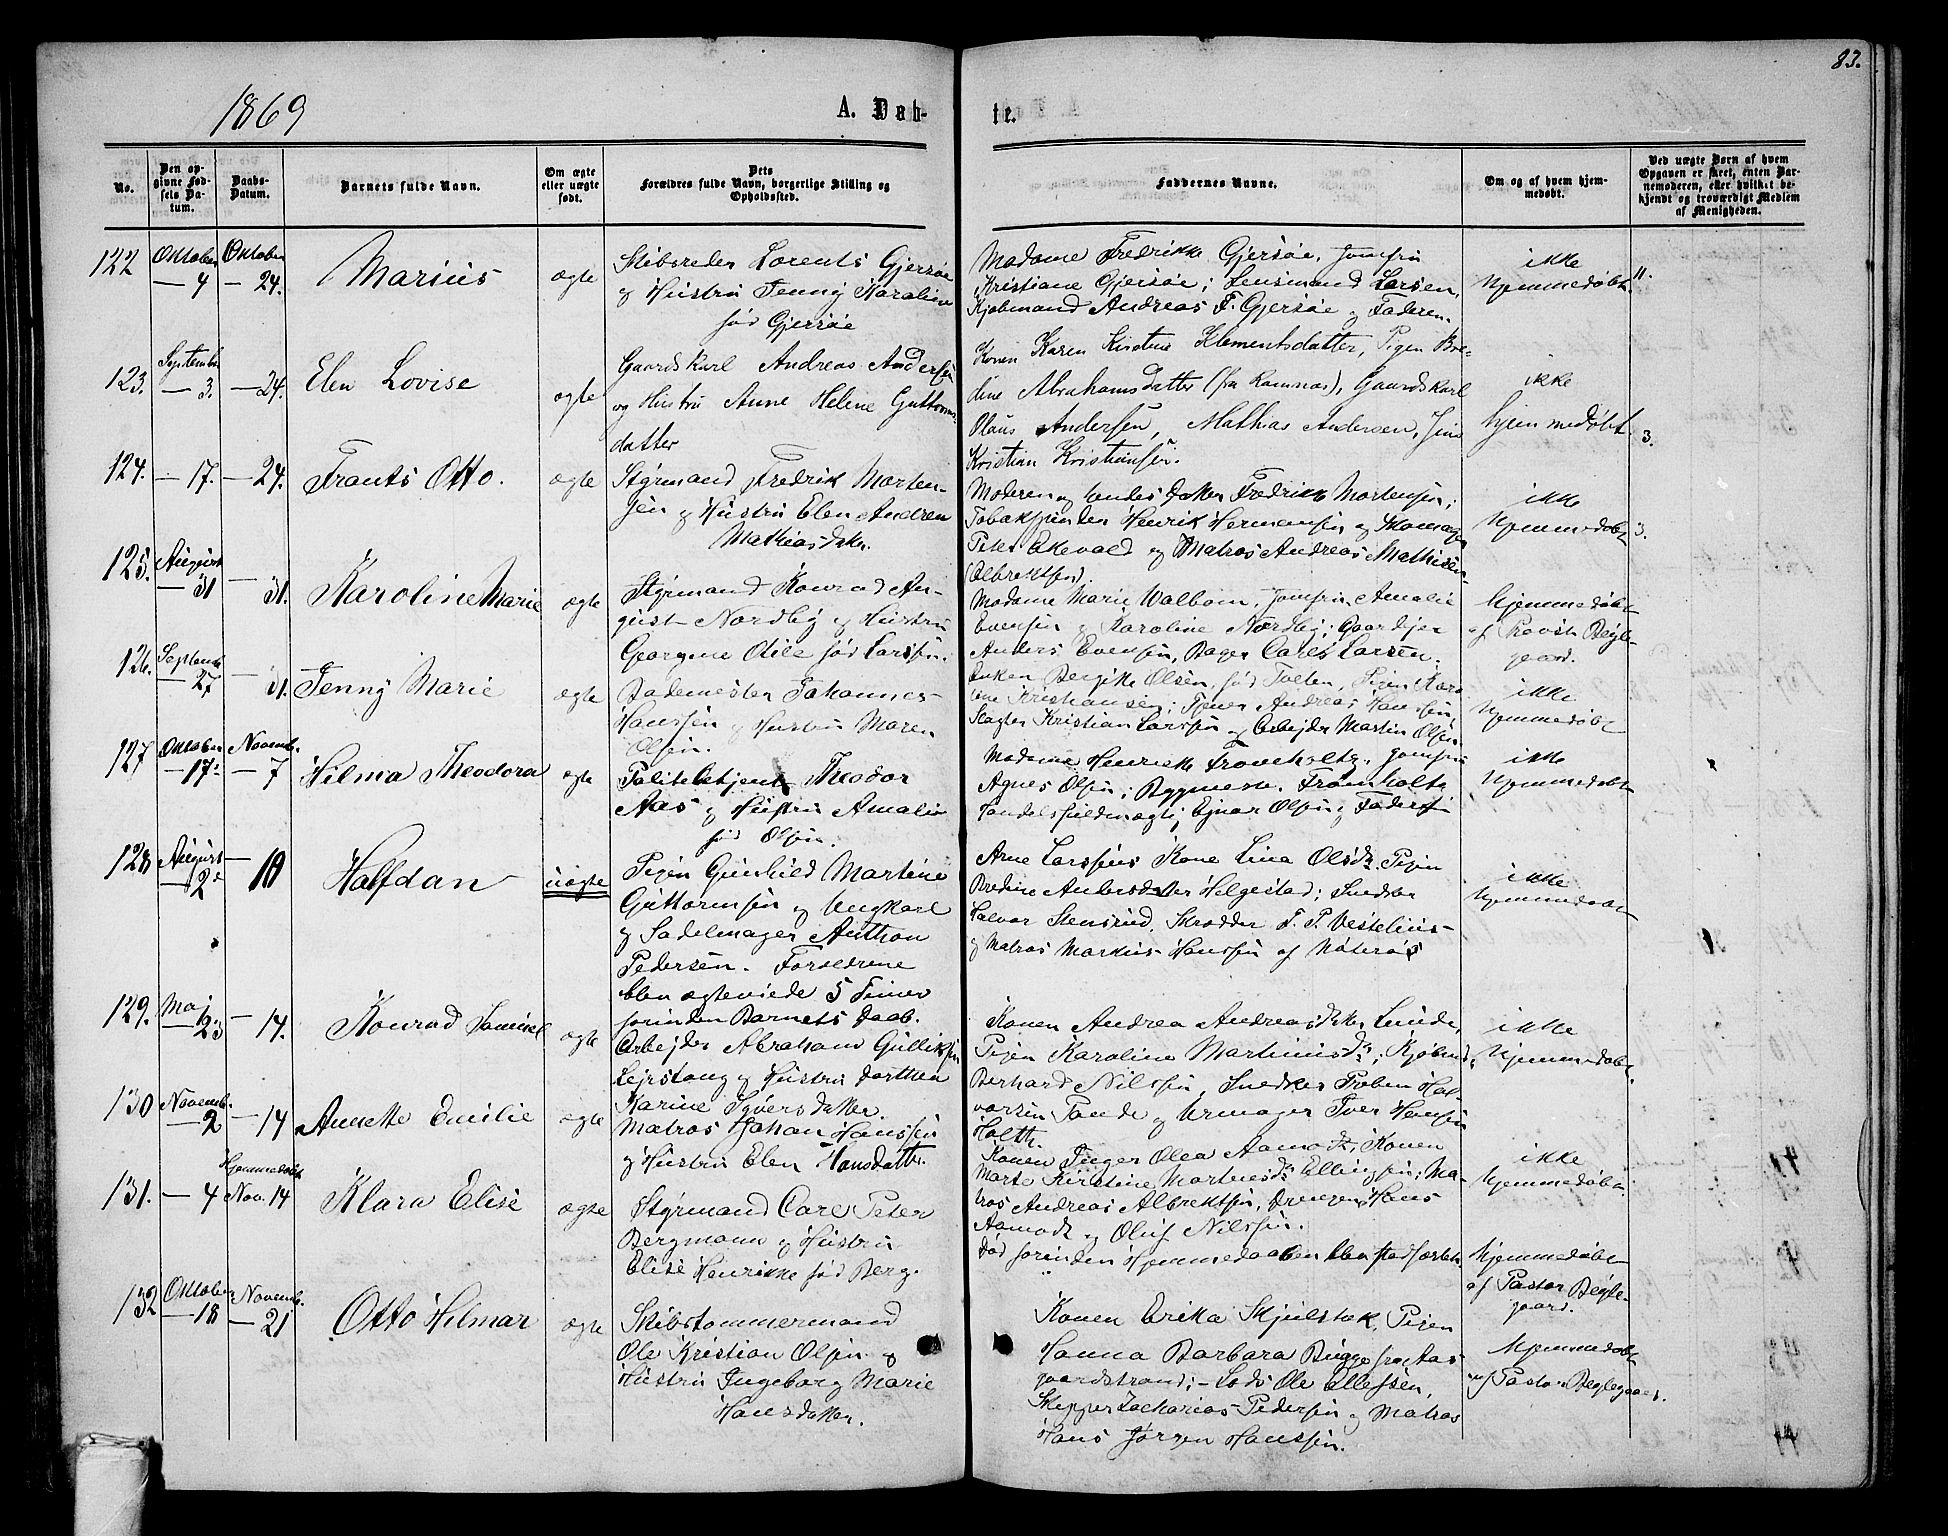 83.
1869
A. Døb-
te.
No.
Den op-
givne Fød-
sels Da-
tum.
Daabs-
Datum.
Barnets fulde Navn.
Om ægte
eller uægte
født.
Dets
Forældres fulde Navn, borgerlige Stilling og
Opholdssted.
Faddernes Navne.
Om og af hvem hjem-
medøbt.
Ved uægte Børn af hvem
Opgaven er skeet, enten Bar-
nemoderen, eller hvilket be-
kjendt og troværdigt Medlem
af Menigheden.
122
Oktober
— 4
Oktober
— 24.
Marius
ægte
Skibsreder Lorents Gjersøe
og Hustru Jenny Karoline
fød Gjersøe
Madame Fredrikke Gjersøe, Jomfru
Kristiane Gjersøe; Lensmand Larsen,
Kjøbmand Andreas F. Gjersøe og Faderen.
ikke
hjemmedøbt.
11.
123.
September
— 3.
— 24.
Elen Lovise
ægte
Gaardskarl Andreas Andersen
og Hustru Anne Helene Guttorms-
datter
Konen Karen Kirstine Klementsdatter, Pigen Bre-
dine Abrahamsdatter (fra Ramnæs), Gaardskarl
Olaus Andersen, Mathias Andersen, Jens
Kristian Kristiansen.
ikke
hjemmedøbt
3.
124.
— 17.
— 24.
Frants Otto.
ægte
Styrmand Fredrik Morten-
sen og Hustru Elen Andrea
Mathiasdatter.
Moderen og hendes datter Fredrikke Mortensen;
Tobakspinder Henrik Hermansen og Skomager
Peter Ekevald og Matros Andreas Mathisen
Albrektsen.
ikke
hjemmedøbt
3.
125.
August
— 31
— 31.
Karoline Marie
ægte
Styrmand Konrad Au-
gust Nordby og Hustru
Georgine Otile fød Larsen.
Madame Marie Walbom, Jomfru Amalie
Evensen og Karoline Nordby; Gaardejer
Anders Evensen, Bager Carl Larsen.
hjemmedøbt
af Provst Bugle-
gaard.
126.
Septembr
— 27
— 31.
Jenny Marie
ægte
Bademester Johannes
Hanssen og Hustru Maren
Olsen.
Enken Birgitte Olsen, fød Tolten, Pigen Karo-
line Kristiansen; Tjener Andreas Hanssen,
Slagter Kristian Larssen og Arbejder Martin Olsen
ikke
hjemmedøbt
127
Oktober
— 17
Novemb.
— 7
Hilma Theodora
ægte
Politibetjent Theodor
Aas og Hustru Amalie
fød Olsen.
Madame Henriette Fromholtz, Jomfru
Agnes Olsen; Bygmester Fromholtz
Handelsfuldmægtig Ejnar Olsen og Faderen
ikke
hjemmedøbt
128
August
— 2
— 10
Halfdan
uægte
Pigen Gunhild Martine
Guttormsen og Ungkarl
og Sadelmager Anthon
Pedersen. Forældrene
blev ægteviede 5 Timer
forinden Barnets Daab.
Arne Larssens Kone Lina Olsdr. Pigen
Bredine Andersdatter Helgestad; Snedker
Halvor Stensrud, Skrædder J. P. Vesselius
og Matros Markus Hanssen af Nøterø
ikke
hjemmedøbt
129.
Maj
— 23
— 14.
Konrad Samuel
ægte
Arbejder Abraham Gulliksen
Lejstang og Hustru Dorthea
Karine Syversdatter.
Konen Andrea Andreasdatter Lunde,
Pigen Karoline Martinusdr; Kjøbmd.
Berhard Nilssen, Snedker Preben Hal-
vorsen Tande og Urmager Iver Hansen
Holth.
ikke
hjemmedøbt.
130
Novemb.
— 2
— 14
Annette Emilie
ægte
Matros Johan Hanssen
og Hustru Elen Hansdatter.
Konen Inger Olea Aamodt, Konen
Marte Kirstine Martinusdr Ellingsen; Ma-
tros Andreas Albrektsen, Drengen Hans
Aamodt og Oluf Nilssen.
ikke
hjemmedøbt.
131.
— 4
Hjemmedøbt
Nov. 14
Klara Elise
ægte
Styrmand Carl Peter
Bergmann og Hustru
Elise Henrikke fød Berg.
Død forinden Hjemmedaaben blev stadfæstet.
hjemmedøbt
af Pastor Bugle-
gaard.
132
Oktober
— 18
Novemb.
— 21
Otto Hilmar
ægte
Skibstømmermand
Ole Kristian Olsen og
Hustru Ingeborg Marie
Hansdatter.
Konen Erika Skjelstok, Pigen
Hanna Barbara Bugge fra Aas-
gaardstrand; — Lods Ole Ellefsen,
Skipper Zacharias Pedersen og Matros
Hans Jørgen Hanssen.
hjemmedøbt
af Pastor Buglegaard.